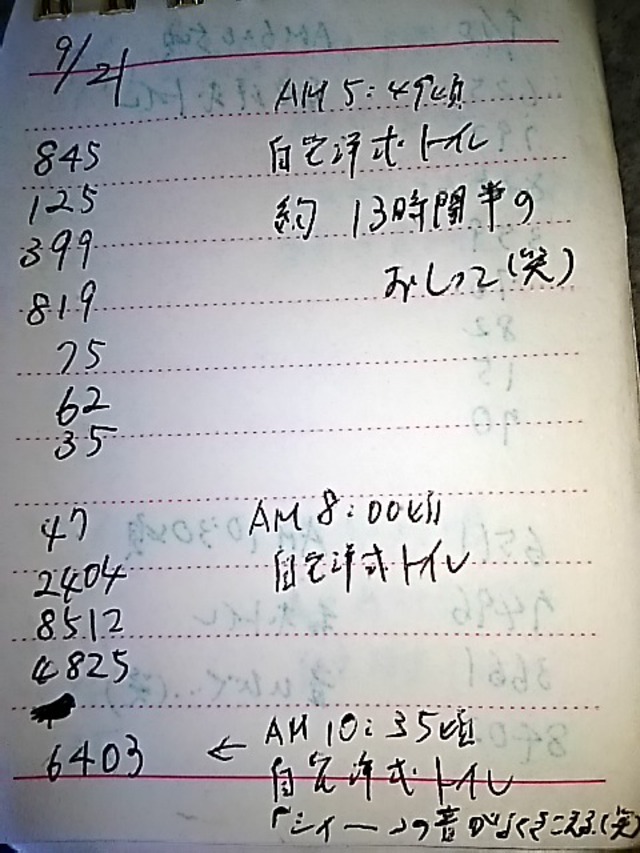 9/21
AM 5:49頃
845 自宅洋式トイレ
125 約 13時間半の
399
819 おしっこ(笑)
75
62
35
47 AM 8:00頃
2404 自宅洋式トイレ
8512
4825
6403 ← AM 10:35頃
自宅洋式トイレ
「シイーーの音がよくきこえる(笑)